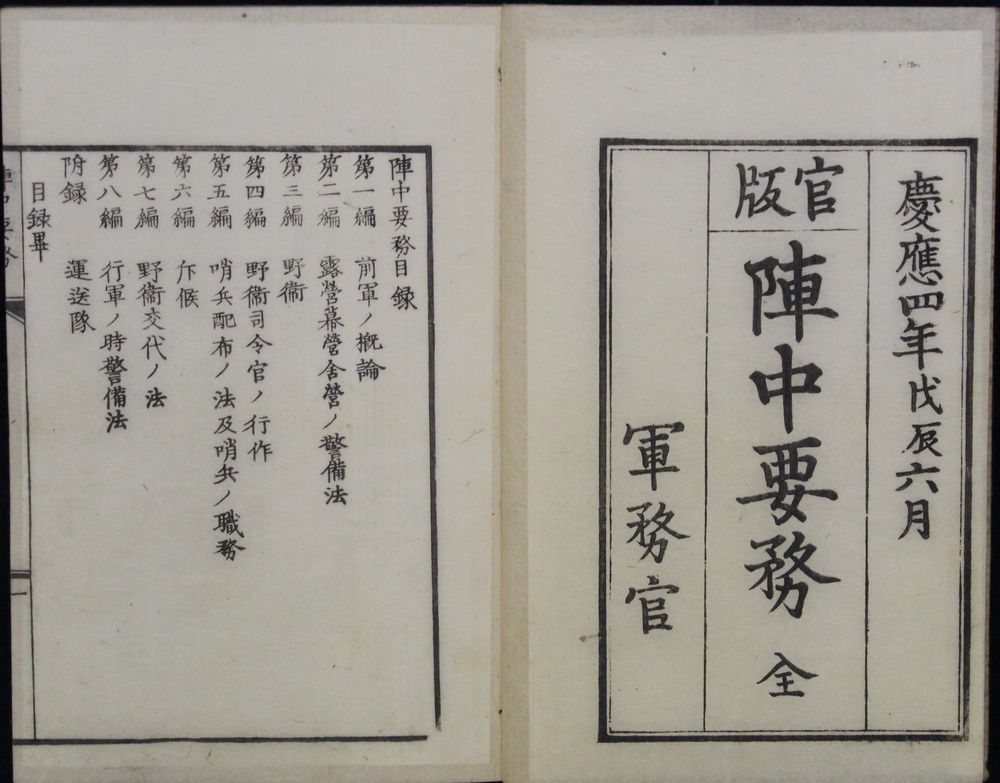 慶應四年戊辰六月
官版
陣中要務 全
軍務官
陣中要務目録
第一編 前軍ノ概論
第二編 露營幕營舎營ノ警備法
第三編 野衞
第四編 野衞司令官ノ行作
第五編 哨兵配布ノ法及哨兵ノ職務
第六編 斥候
第七編 野衞交代ノ法
第八編 行軍ノ時警備法
附録 運送隊
目録畢
陣中要務
一